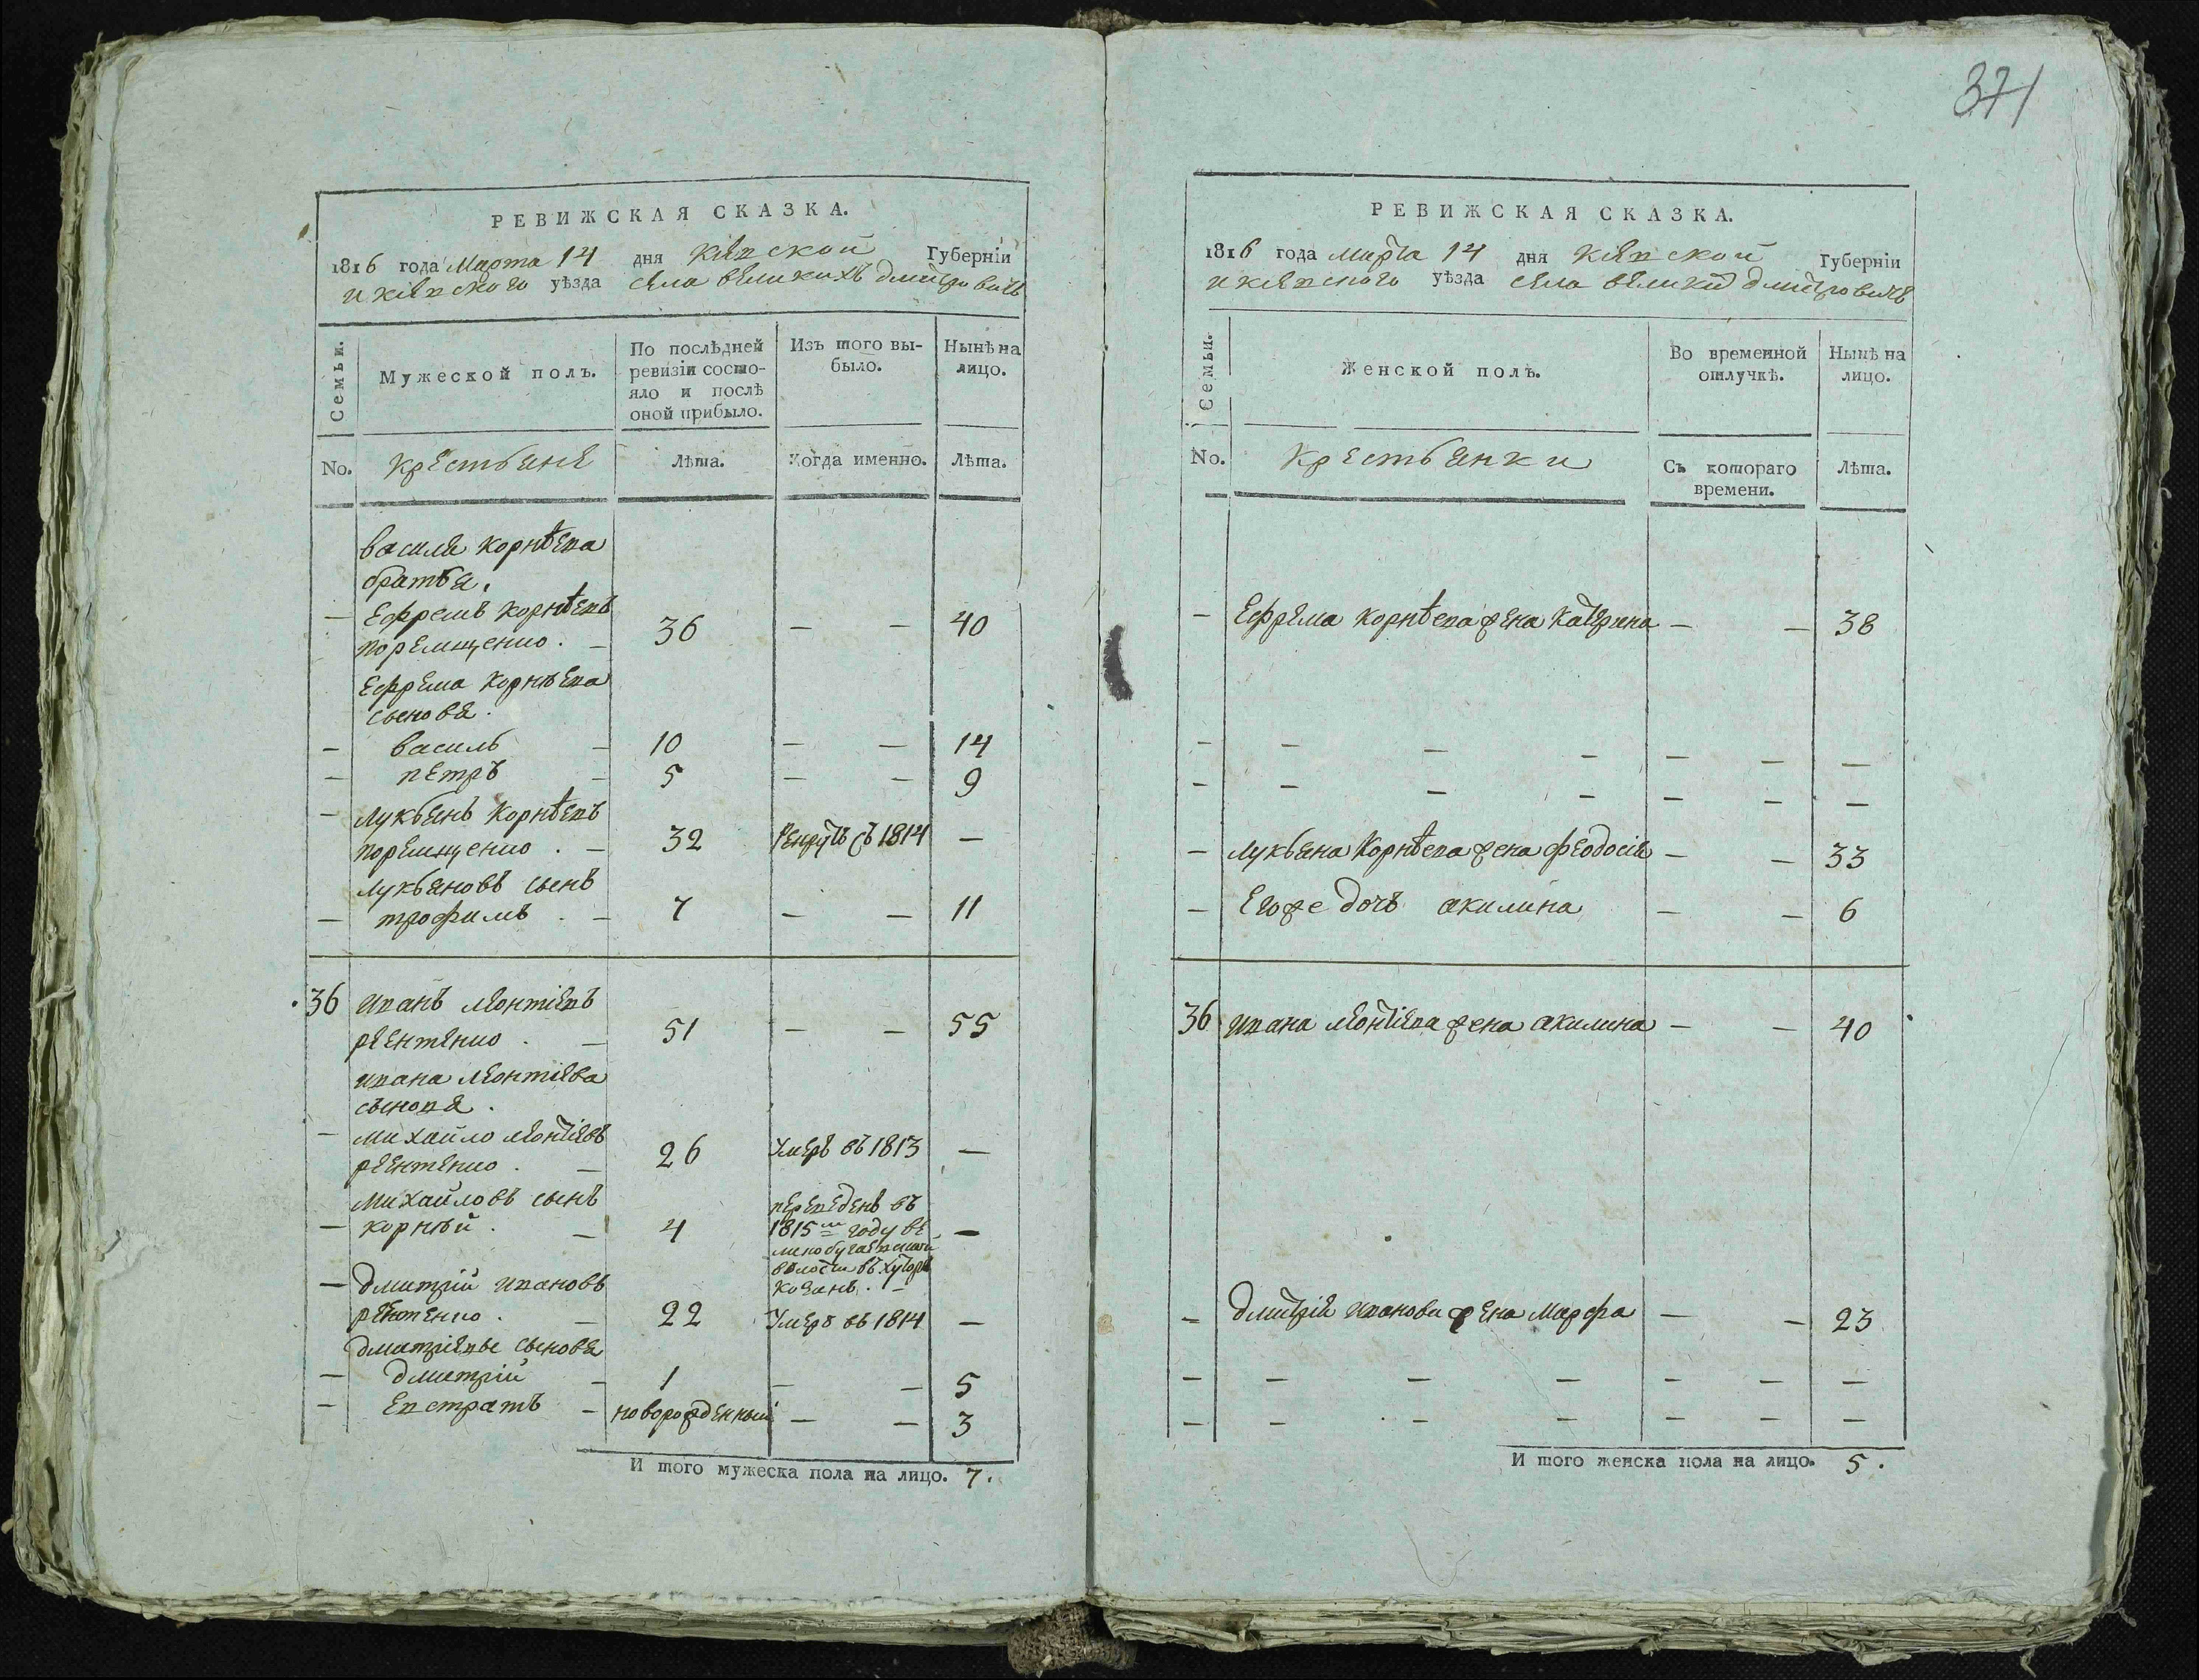 371
РЕВИЖСКАЯ СКАЗКА.
1816 года Марта 14 дня Кіевской Губерніи
и Кіевского уѣзда села Великихъ Дмитровичъ
Семьи.
Мужеской полъ.
По послѣдней ревизіи состояло и послѣ оной прибыло.
Изъ того выбыло.
Нынѣ на лицо.
No.
Крестьяне
Лѣта.
Когда именно.
Лѣта.
Василя Корнѣева
братья.
— Ефремъ Корнѣевъ
Поремщенко. — 36 — — 40
Ефрема Корнѣева
сынова.
— Василь — 10 — — 14
— Петръ — 5 — — 9
— Лукьянъ Корнѣевъ
Поремщенко. — 32 Рекрутъ съ 1814 —
Лукьяновъ сынъ
— Трофимъ. — 7 — — 11
36 Иванъ Леонтіевъ
Реентенко. — 51 — — 55
Ивана Леонтіева
сыновя.
— Михайло Леонтіевъ
Реентенко. — 26 Умеръ въ 1813 —
Михайловъ сынъ
— Корнѣй. — 4 переведенъ въ
1815м году —
волости въ хуторъ
— Дмитрій Ивановъ
Реентенко. — 22 Умеръ въ 1814 —
Дмитріевы сыновя
— Дмитрій — 1 — — 5
— Евстратъ — новорожденный — — 3
И того мужеска пола на лицо. 7.
РЕВИЖСКАЯ СКАЗКА.
1816 года Марта 14 дня Кіевской Губерніи
и Кіевского уѣзда села Великих Дмитровичъ
Семьи.
Женской полъ.
Во временной отлучкѣ.
Нынѣ на лицо.
No.
Крестьянки
Съ котораго времени.
Лѣта.
— Ефрема Корнѣева жена Катерина — — 38
— — — — — — —
— — — — — — —
— Лукьяна Корнѣева жена Феодосія — — 33
— Его же дочь Акилина — — 6
36 Ивана Леонтіева жена Акилина — — 40
— Дмитрія Иванова жена Марфа — — 23
— — — — — — —
— — — — — — —
И того женска пола на лицо. 5.